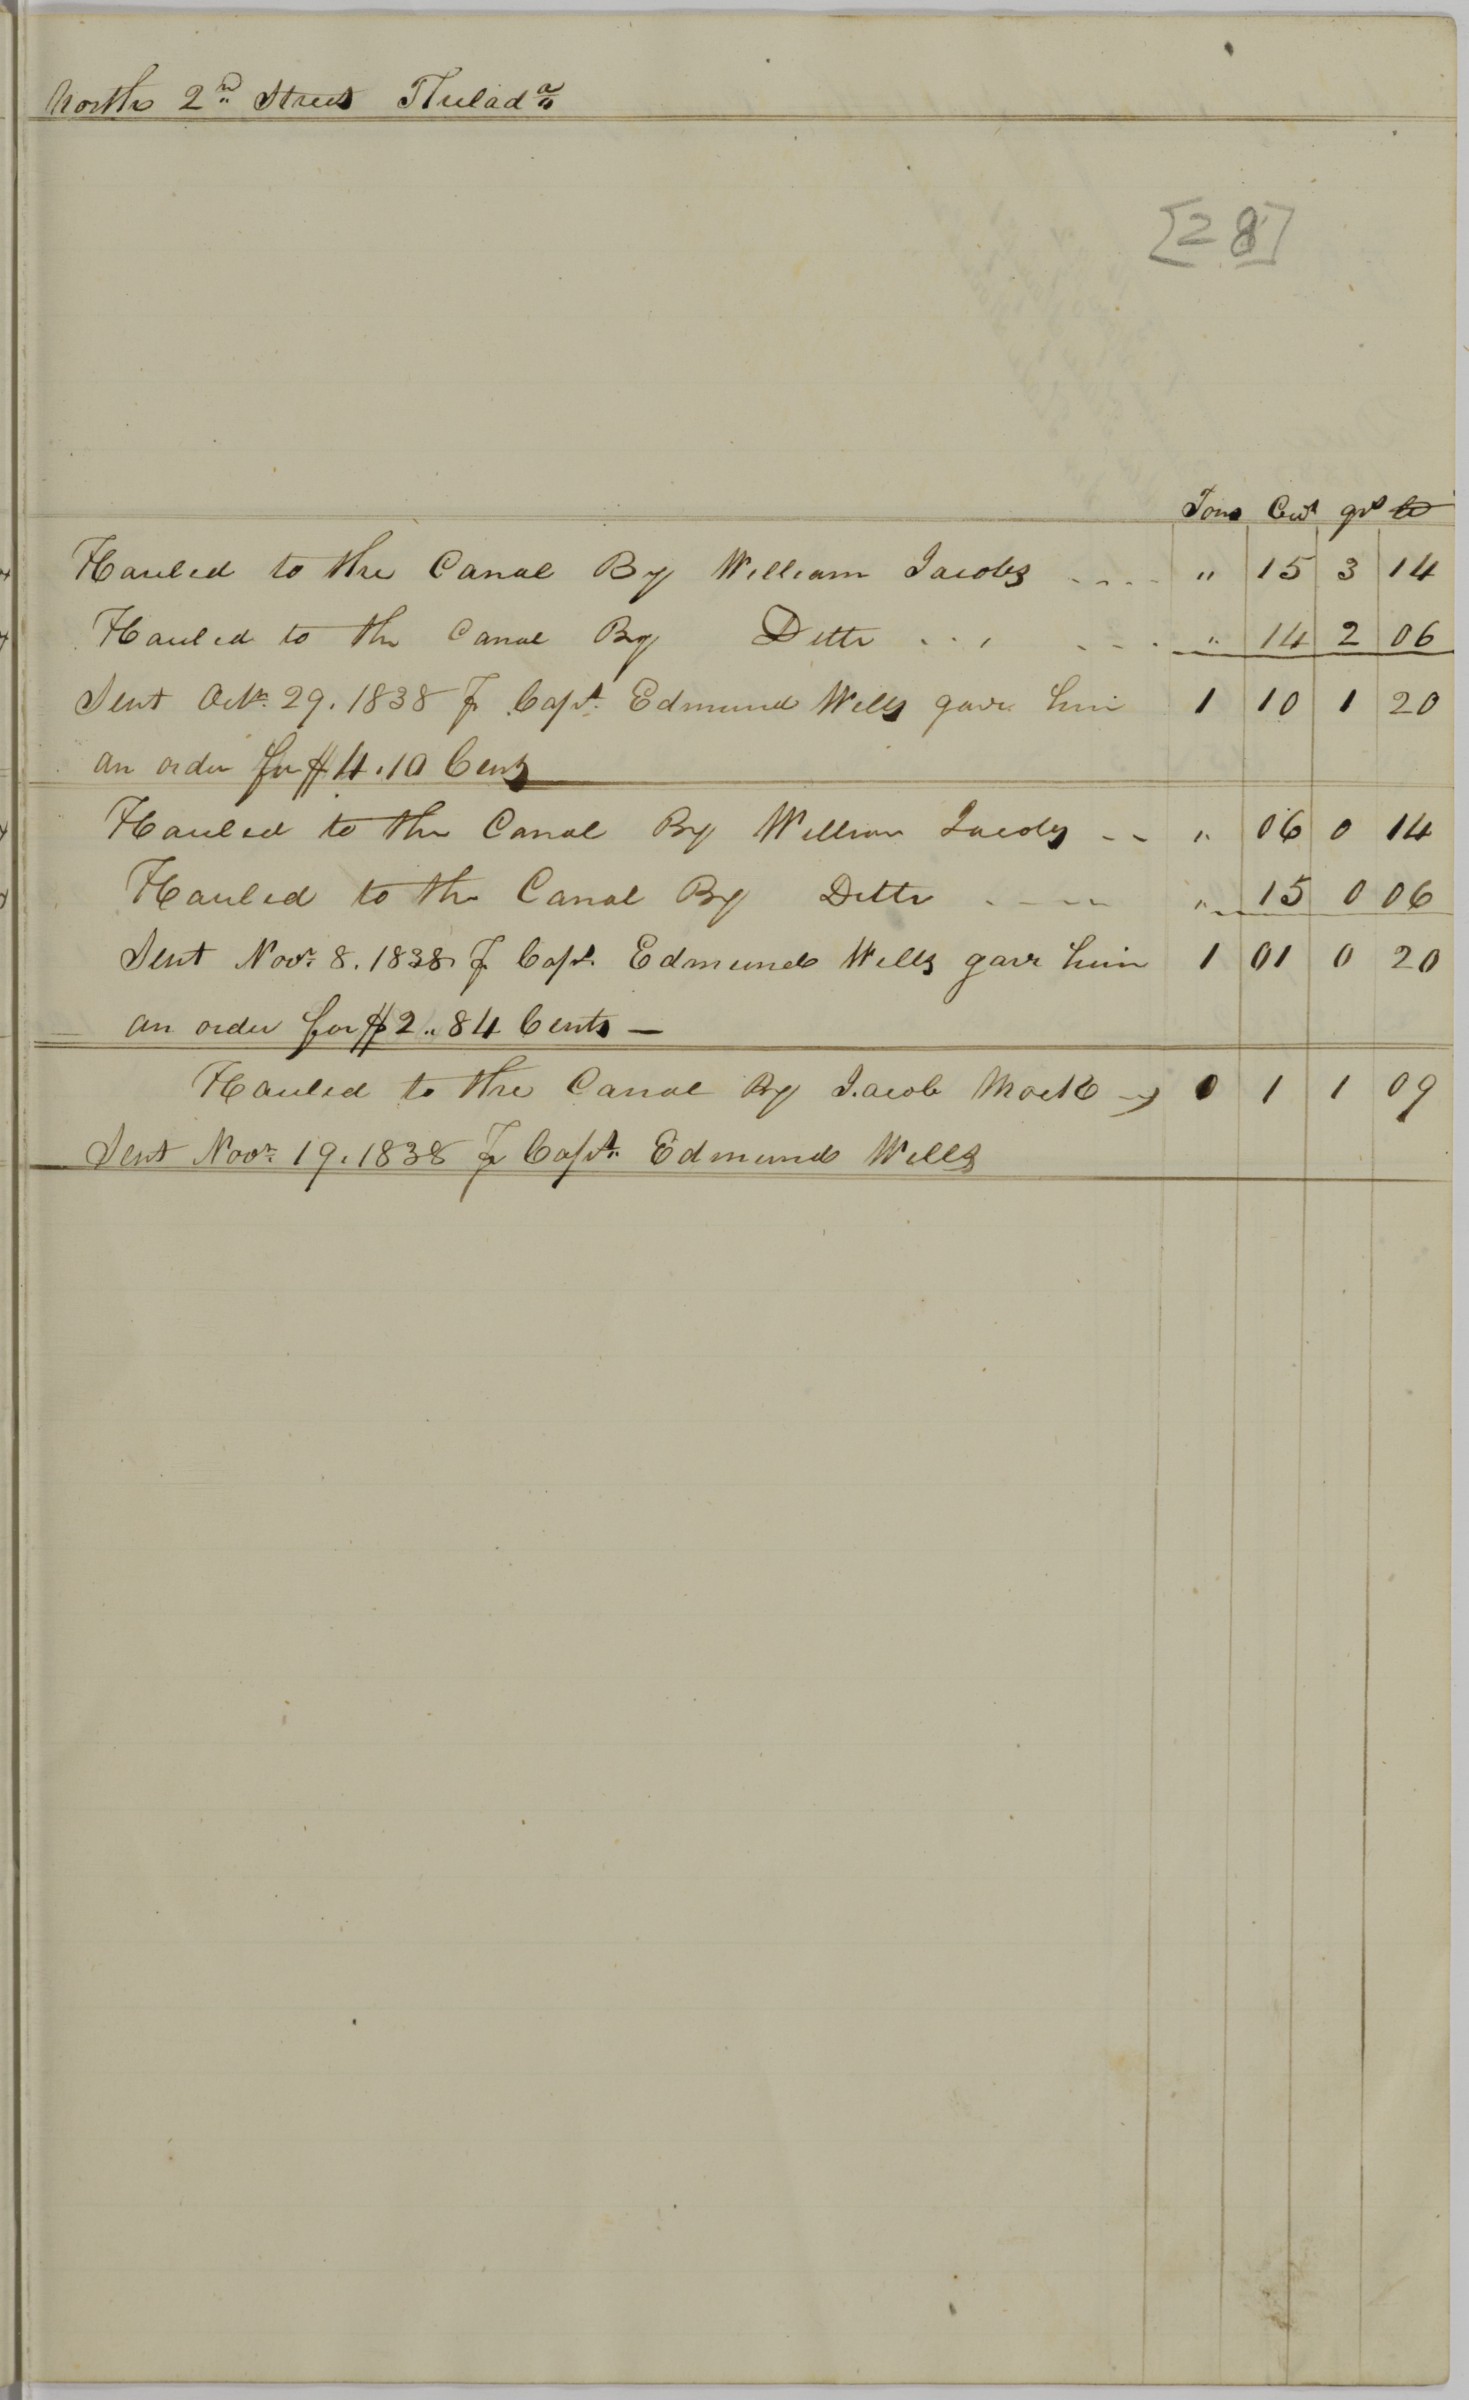 North 2nd Street Philada
[28]
Tons Cwt qrs lb
Hauled to the Canal By William Jacobs .... " 15 3 14
Hauled to the Canal By Ditto ... ... " 14 2 06
Sent Octr. 29. 1838 ⅌ Capt. Edmund Wells gave him 1 10 1 20
an order for $4.10 Cents
Hauled to the Canal By William Jacobs -- " 06 0 14
Hauled to the Canal By Ditto ---- " 15 0 06
Sent Novr. 8. 1838 ⅌ Capt. Edmund Wells gave him 1 01 0 20
an order for $2.. 84 Cents —
Hauled to the Canal By Jacob Mock 0 1 1 09
Sent Novr. 19. 1838 ⅌ Capt. Edmund Wells